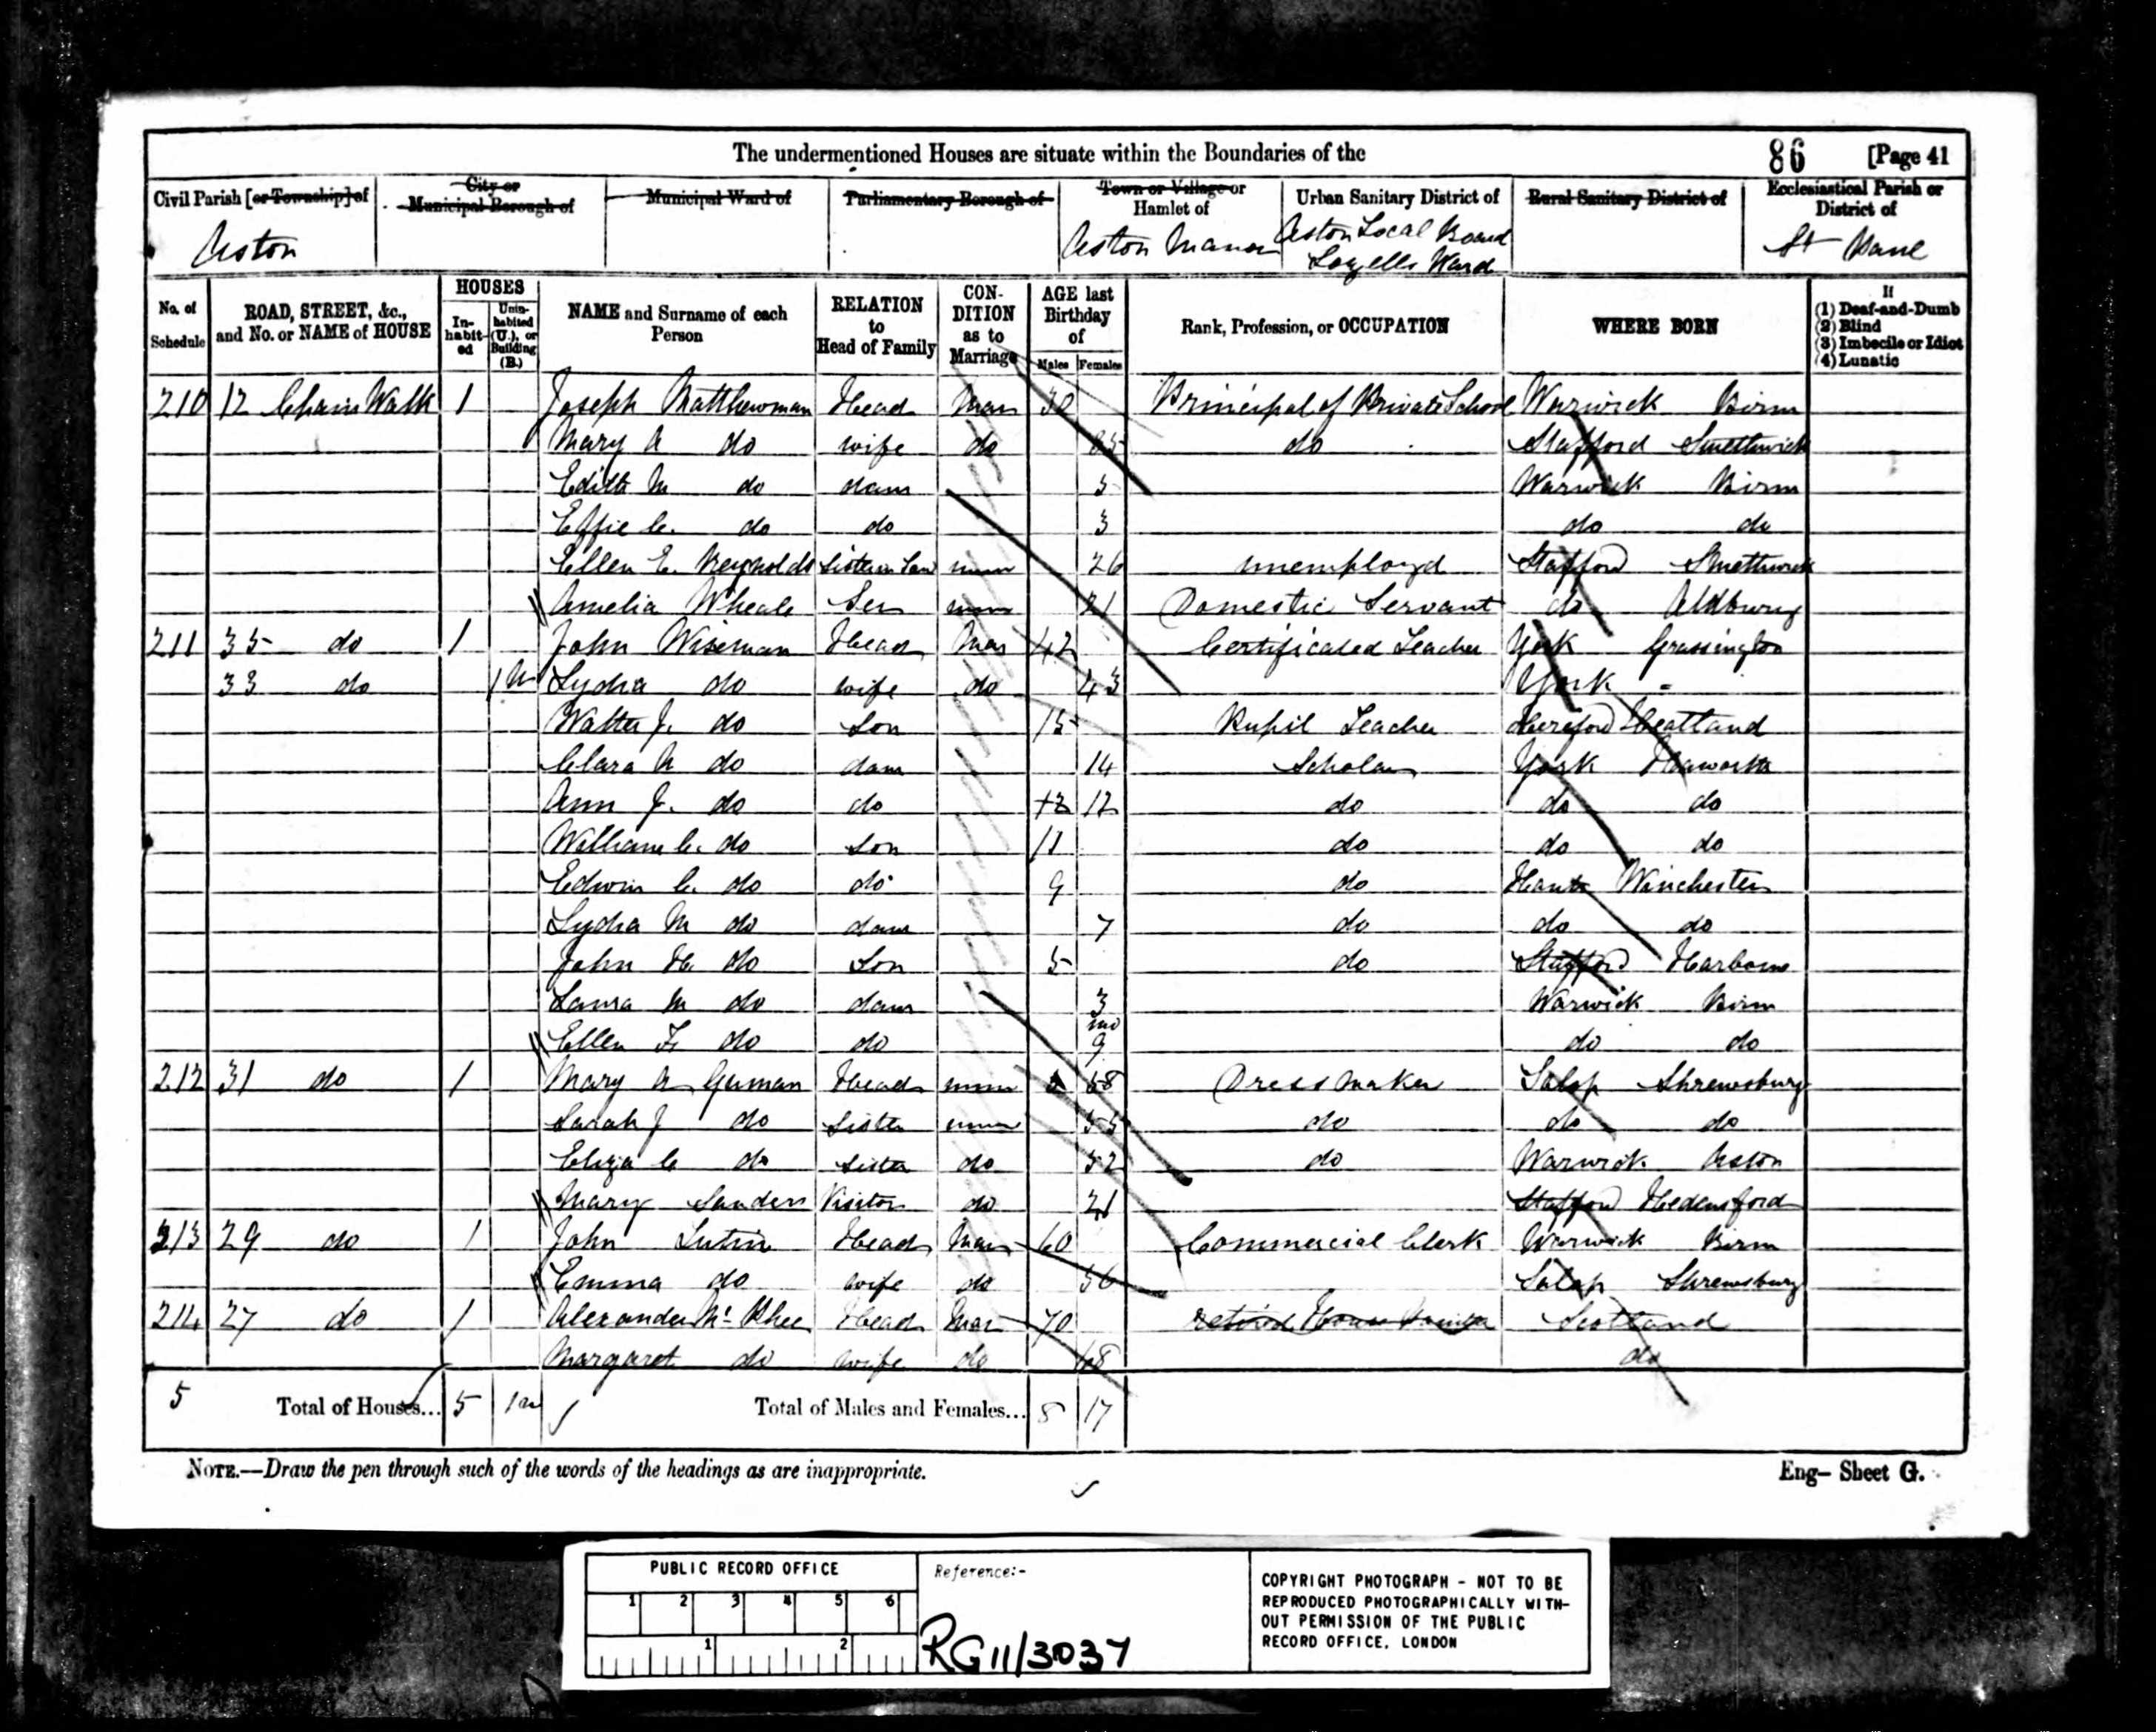 The undermentioned Houses are situate within the Boundaries of the 86 [Page 41
Civil Parish [or Township] of Aston
City or Municipal Borough of
Municipal Ward of
Parliamentary Borough of
Town or Village or Hamlet of Aston Manor
Urban Sanitary District of Aston Local Board Lozells Ward
Rural Sanitary District of
Ecclesiastical Parish or District of St Paul
No. of Schedule
ROAD, STREET, &c., and No. or NAME of HOUSE
HOUSES
Inhabited
Uninhabited (U.), or Building (B.)
NAME and Surname of each Person
RELATION to Head of Family
CONDITION as to Marriage
AGE last Birthday of
Males Females
Rank, Profession, or OCCUPATION
WHERE BORN
If
(1) Deaf-and-Dumb
(2) Blind
(3) Imbecile or Idiot
(4) Lunatic
210 12 Chain Walk 1 Joseph Matthewman Head Mar Principal of Private School Warwick Birm
Mary A do wife do do Stafford Smethwick
Edith M do daur 5 Warwick Birm
Effie C. do do 3 do do
Ellen E. Reynolds Sister in Law unm 26 unemployd Stafford Smethwick
Amelia Wheale Ser unm 21 Domestic Servant do Oldbury
211 35 do 1 John Wiseman Head Mar 42 Certificated Teacher York Grassington
33 do 1 U Lydia do wife do 43 York
Walter J. do Son 15 Pupil Teacher Hereford
Clara A do daur 14 Scholar York Haworth
Ann J. do do 12 12 do do do
William C. do Son 11 do do do
Edwin C. do do 9 do Hants Winchester
Lydia M do daur 7 do do do
John H. do Son 5 do Stafford Harborne
Laura M do daur 3 Warwick Birm
Ellen F. do do mo 9 do do
212 31 do 1 Mary A German Head unm 58 Dress Maker Salop Shrewsbury
Sarah J do Sister unm 55 do do do
Eliza C do Sister do 52 do Warwick Aston
Mary Sanders Visitor do 21 Stafford Hedensford
213 29 do 1 John Head Mar 60 Commercial Clerk Warwick Birm
Emma do wife do 56 Salop Shrewsbury
214 27 do 1 Alexander Mc Phee Head Mar 70 retired House Scotland
Margaret do wife do 68 do
5 Total of Houses... 5 1 u Total of Males and Females... 8 17
NOTE.—Draw the pen through such of the words of the headings as are inappropriate.
Eng— Sheet G.
PUBLIC RECORD OFFICE
1 2 3 4 5 6
1 2
Reference:-
RG11/3037
COPYRIGHT PHOTOGRAPH - NOT TO BE
REPRODUCED PHOTOGRAPHICALLY WITH-
OUT PERMISSION OF THE PUBLIC
RECORD OFFICE, LONDON